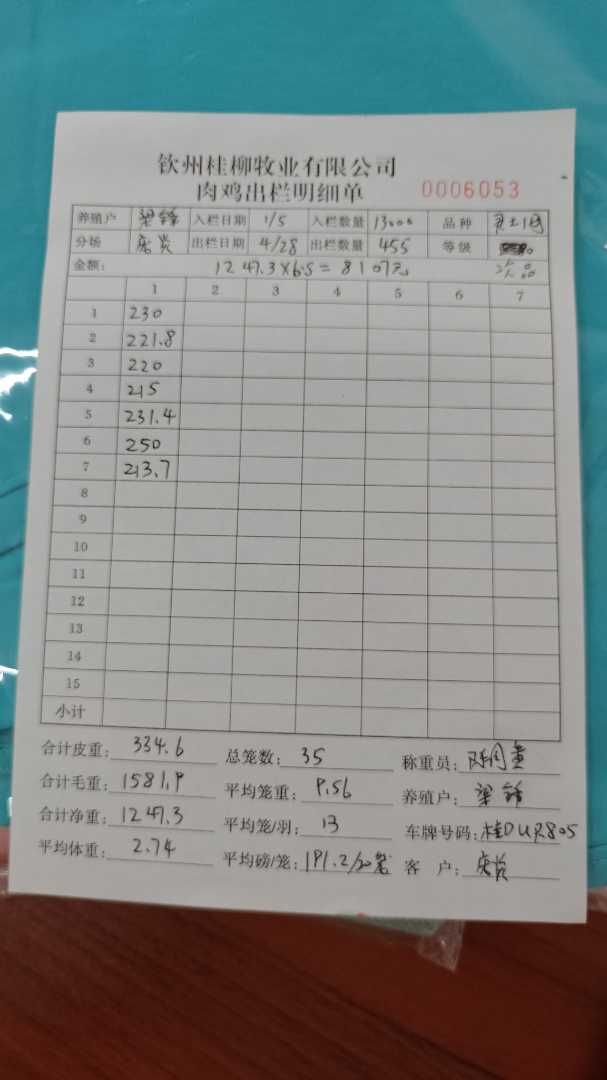 钦州桂柳牧业有限公司
肉鸡出栏明细单 0006053
养殖户 梁锋 入栏日期 1/5 入栏数量 13000 品种
分场 出栏日期 4/28 出栏数量 455 等级
金额: 1247.3×6.5=8107元 次品
1 2 3 4 5 6 7
1 230
2 221.8
3 220
4 215
5 231.4
6 250
7 213.7
8
9
10
11
12
13
14
15
小计
合计皮重: 334.6 总笼数: 35 称重员:
合计毛重: 1581.9 平均笼重: 9.56 养殖户: 梁锋
合计净重: 1247.3 平均笼/羽: 13 车牌号码: 桂DUR805
平均体重: 2.74 平均磅/笼: 191.2/20笼 客户: